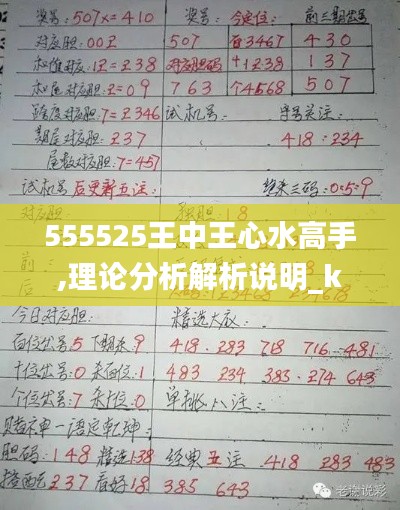 奖号:507x=410 奖号: 今定位: 前三期奖号
对应胆:00尾 507 百3467 430
:1尾=238 对应胆码 +1238 137
对应胆:0=09 763 个04568 507
对应胆:7=2346 试机号:
对应胆:237 418:234
尾数对应胆:7=457
试机号后更新五注: 绝杀三码:0:5:9
对应胆 独胆:18
555525王中王心水高手
,理论分析解析说明_k
今日对应胆: 精选大底:
百位出号5下期杀9 418.283 718 716.481
十位出号:0杀百位:1 483 234 383.274 643
个位出号:7杀十位:0 单挑八注:
赌神单一语定乾坤:
胆码:148精选138 经典五注.418 283 483
237看好18 385 643
老犇说彩